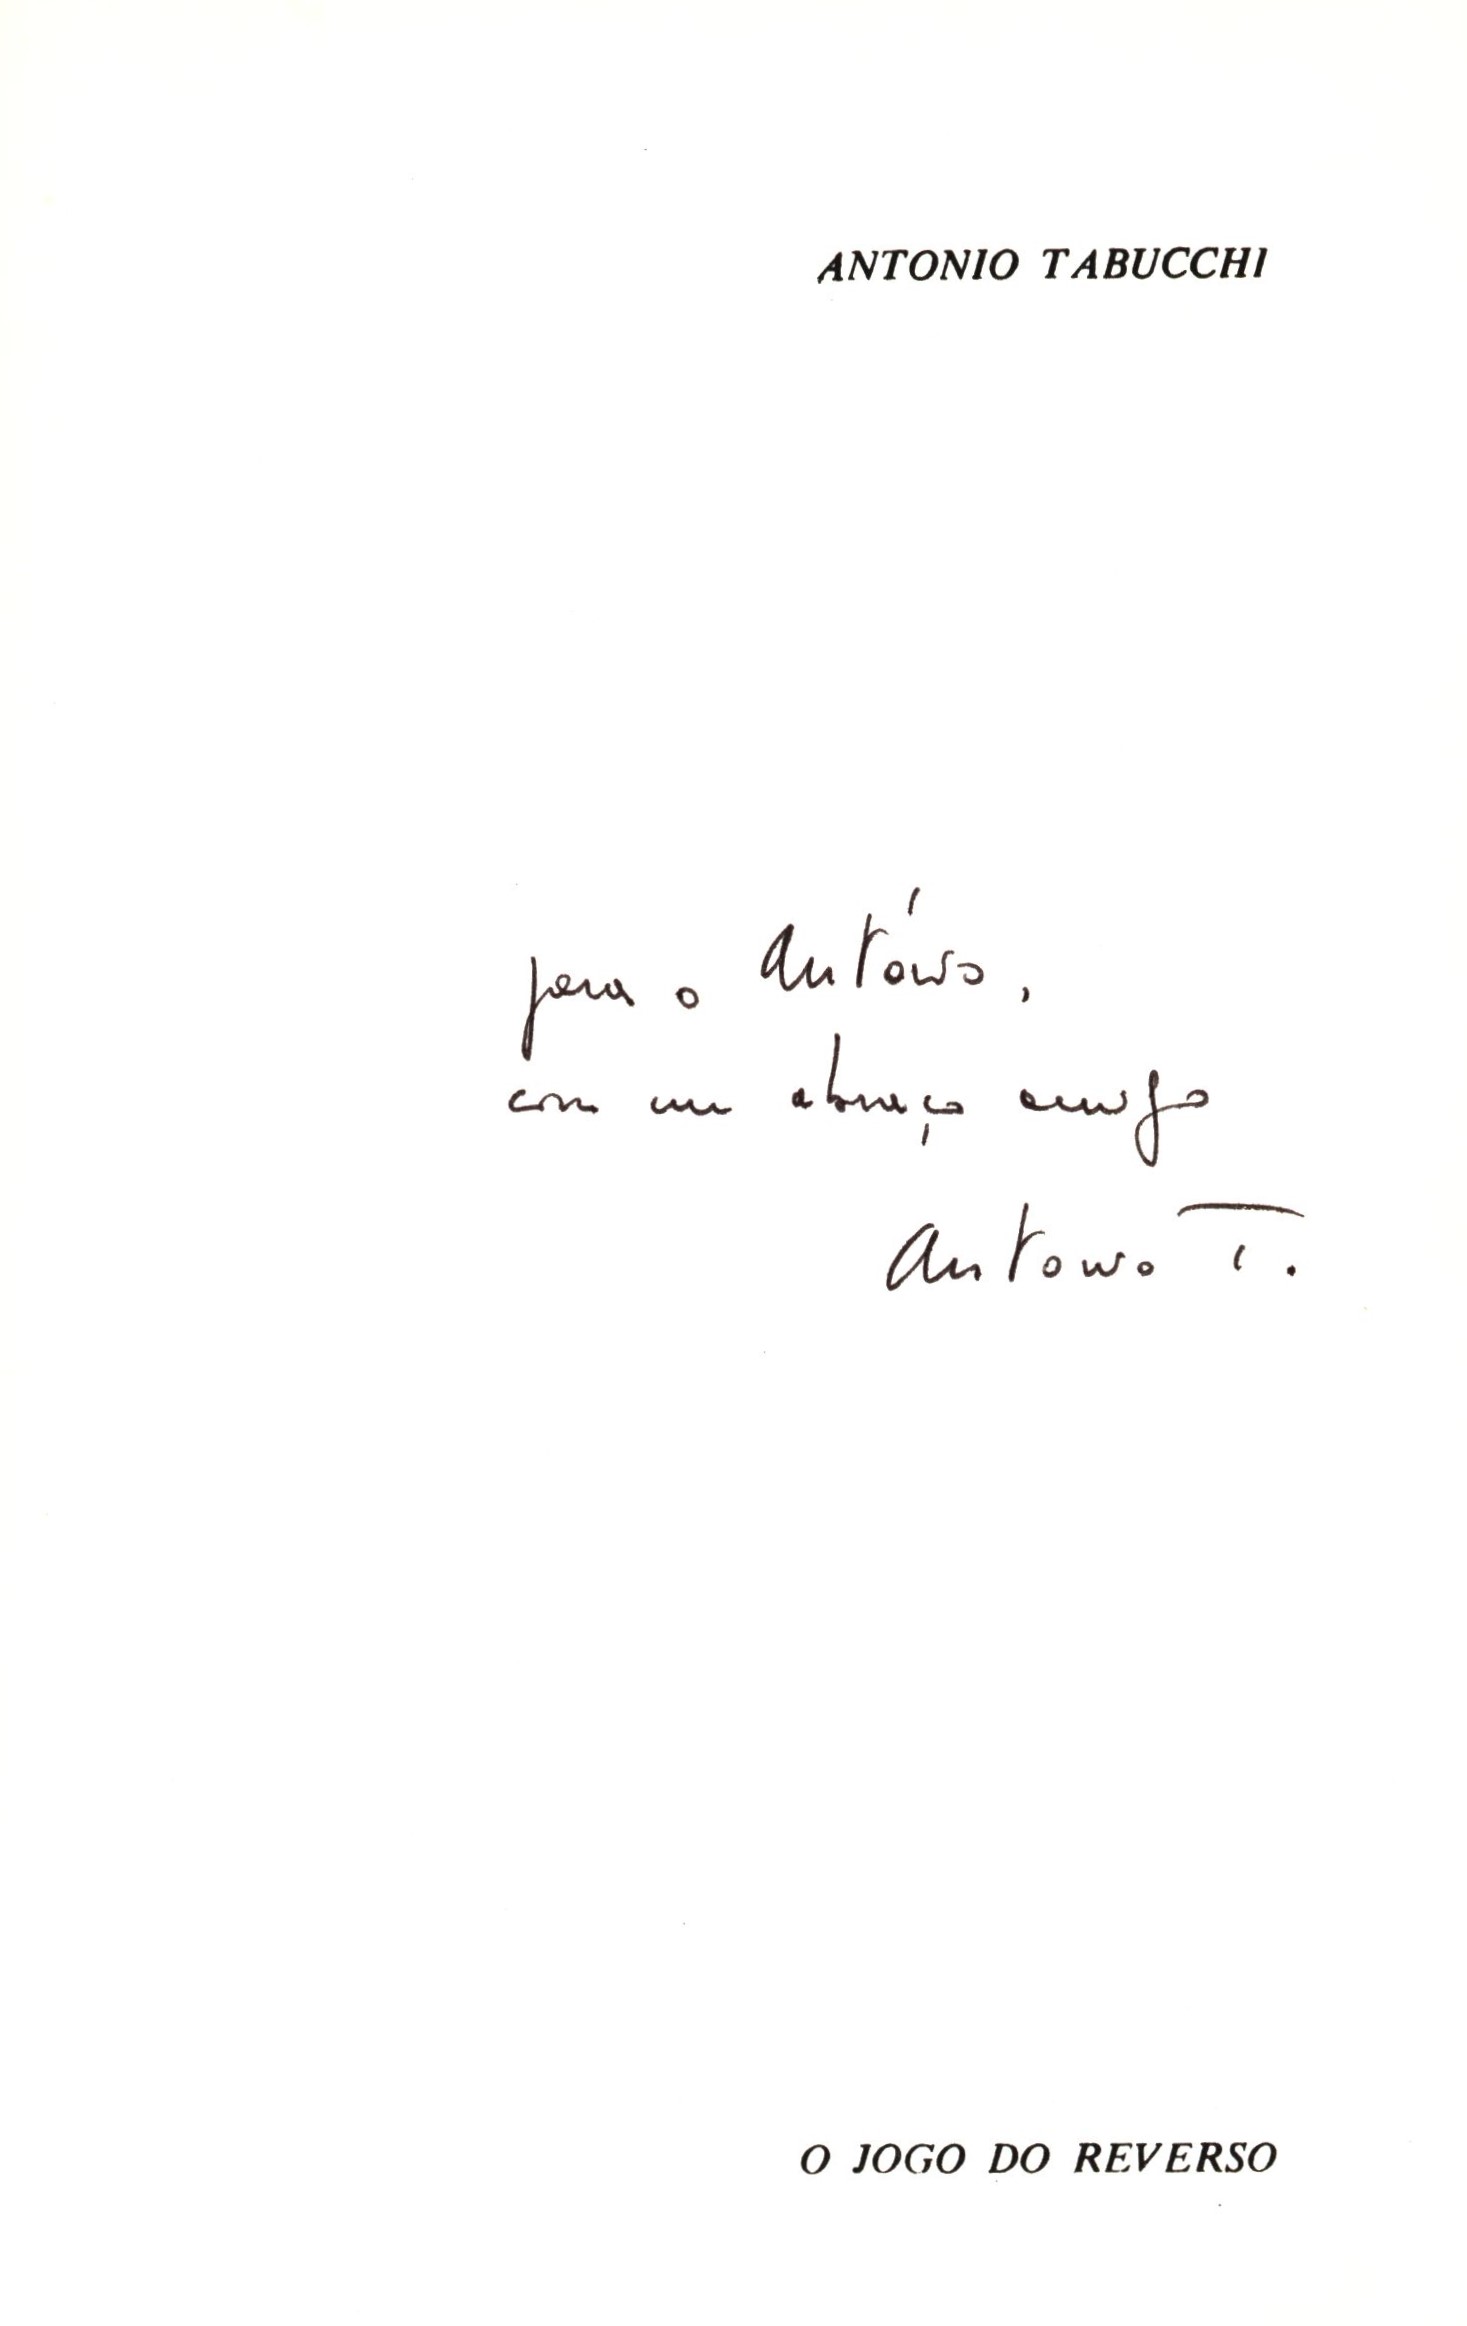 ANTONIO TABUCCHI
para o António,
com um abraço amigo
Antonio T.
O JOGO DO REVERSO